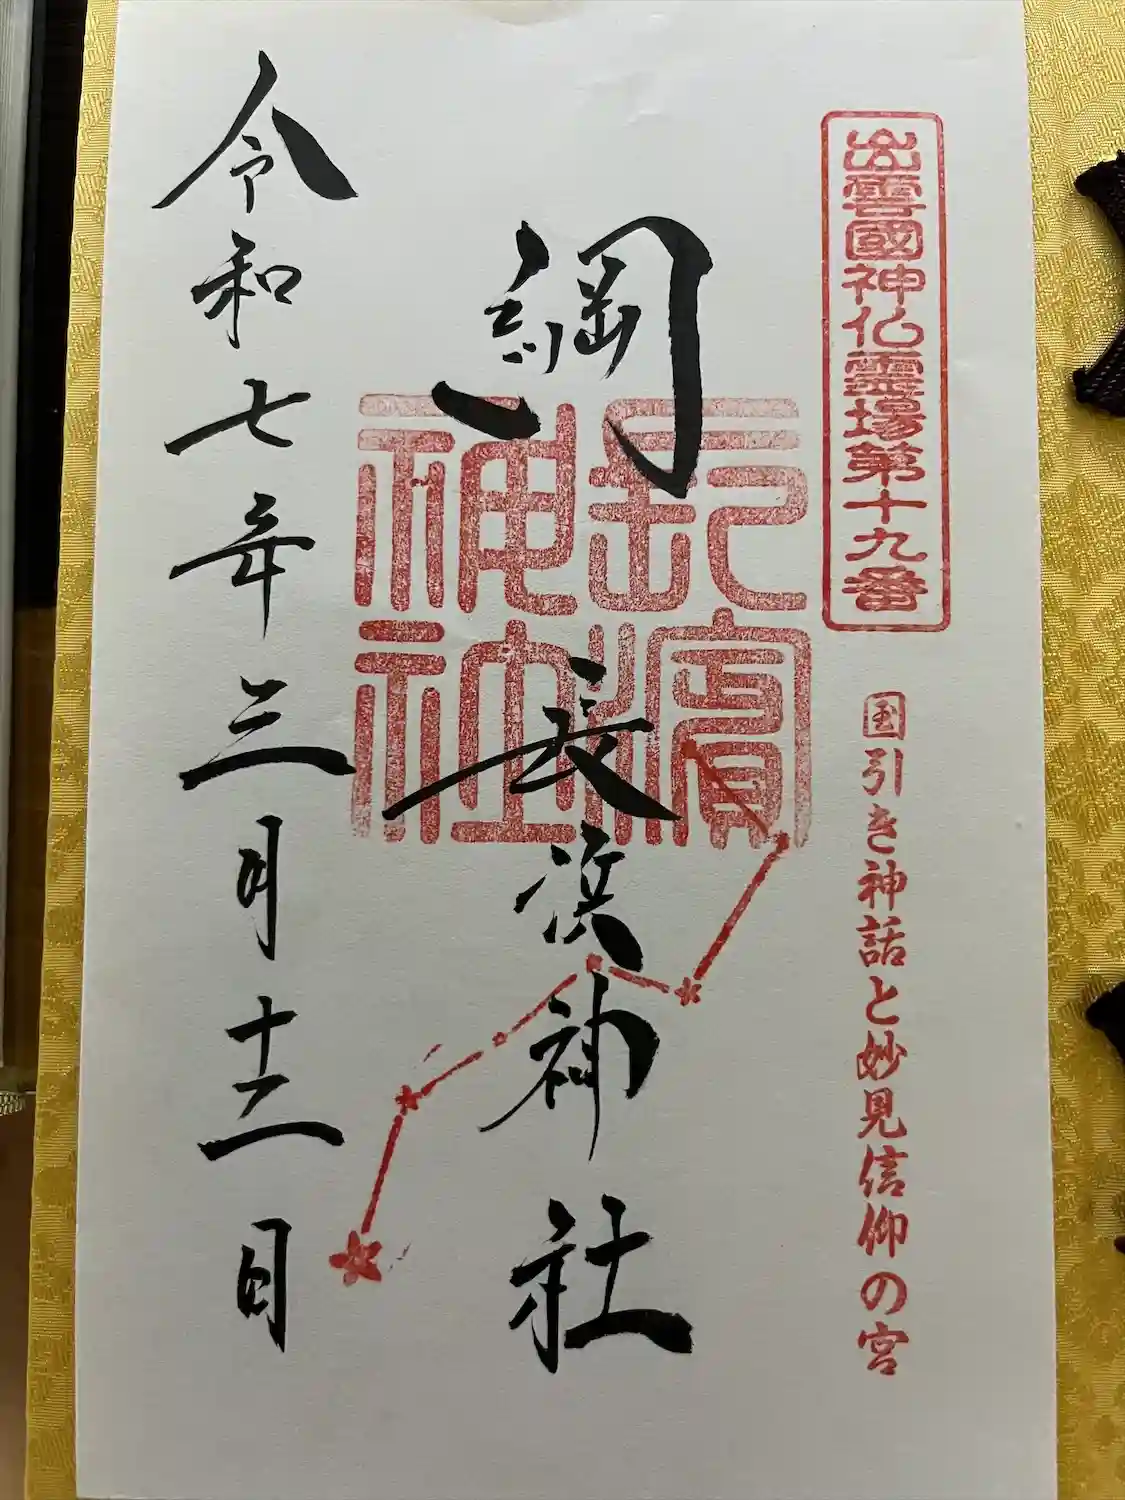 出雲國神仏霊場第十九番
国引き神話と妙見信仰の宮
綱
長濱神社
長浜神社
令和七年三月十二日